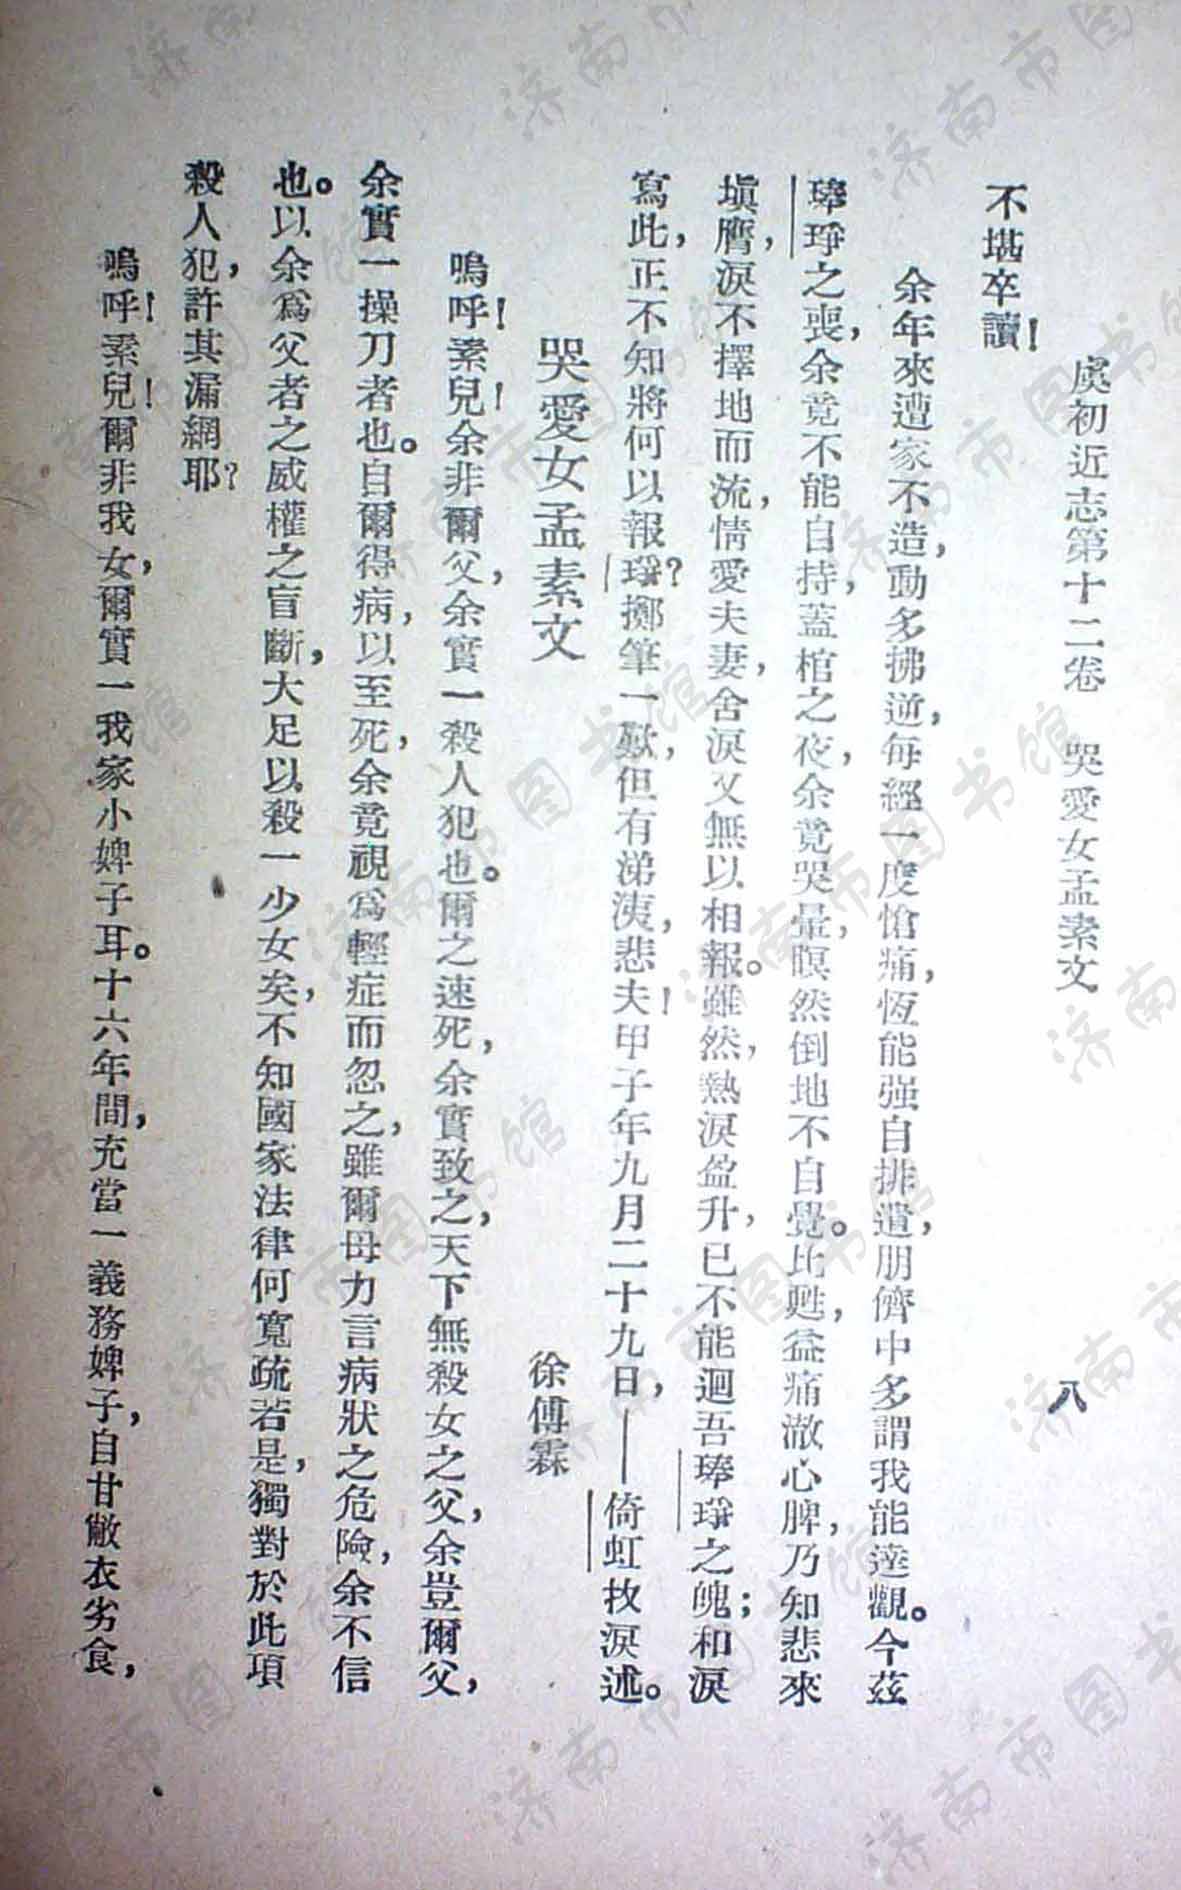 虞初近志第十二卷　哭愛女孟素文　八
不堪卒讀！
余年來遭家不造，動多拂逆，每經一度愴痛，恆能强自排遣，朋儕中多謂我能達觀。今茲
琫琤之喪，余竟不能自持，蓋棺之夜，余竟哭暈，暝然倒地不自覺。比甦，益痛澈心脾，乃知悲來
塡膺，淚不擇地而流，情愛夫妻，舍淚又無以相報。雖然，熱淚盈升，已不能迴吾琫琤之魄；和淚
寫此，正不知將何以報琤？擲筆一歎，但有涕洟，悲夫！甲子年九月二十九日，——倚虹抆淚述。
哭愛女孟素文　徐傅霖
嗚呼！素兒！余非爾父，余實一殺人犯也。爾之速死，余實致之，天下無殺女之父，余豈爾父，
余實一操刀者也。自爾得病，以至死，余竟視爲輕症而忽之，雖爾母力言病狀之危險，余不信
也。以余爲父者之威權之盲斷，大足以殺一少女矣，不知國家法律何寬疏若是，獨對於此項
殺人犯，許其漏網耶？
嗚呼！素兒！爾非我女，爾實一我家小婢子耳。十六年間，充當一義務婢子，自甘敝衣劣食，